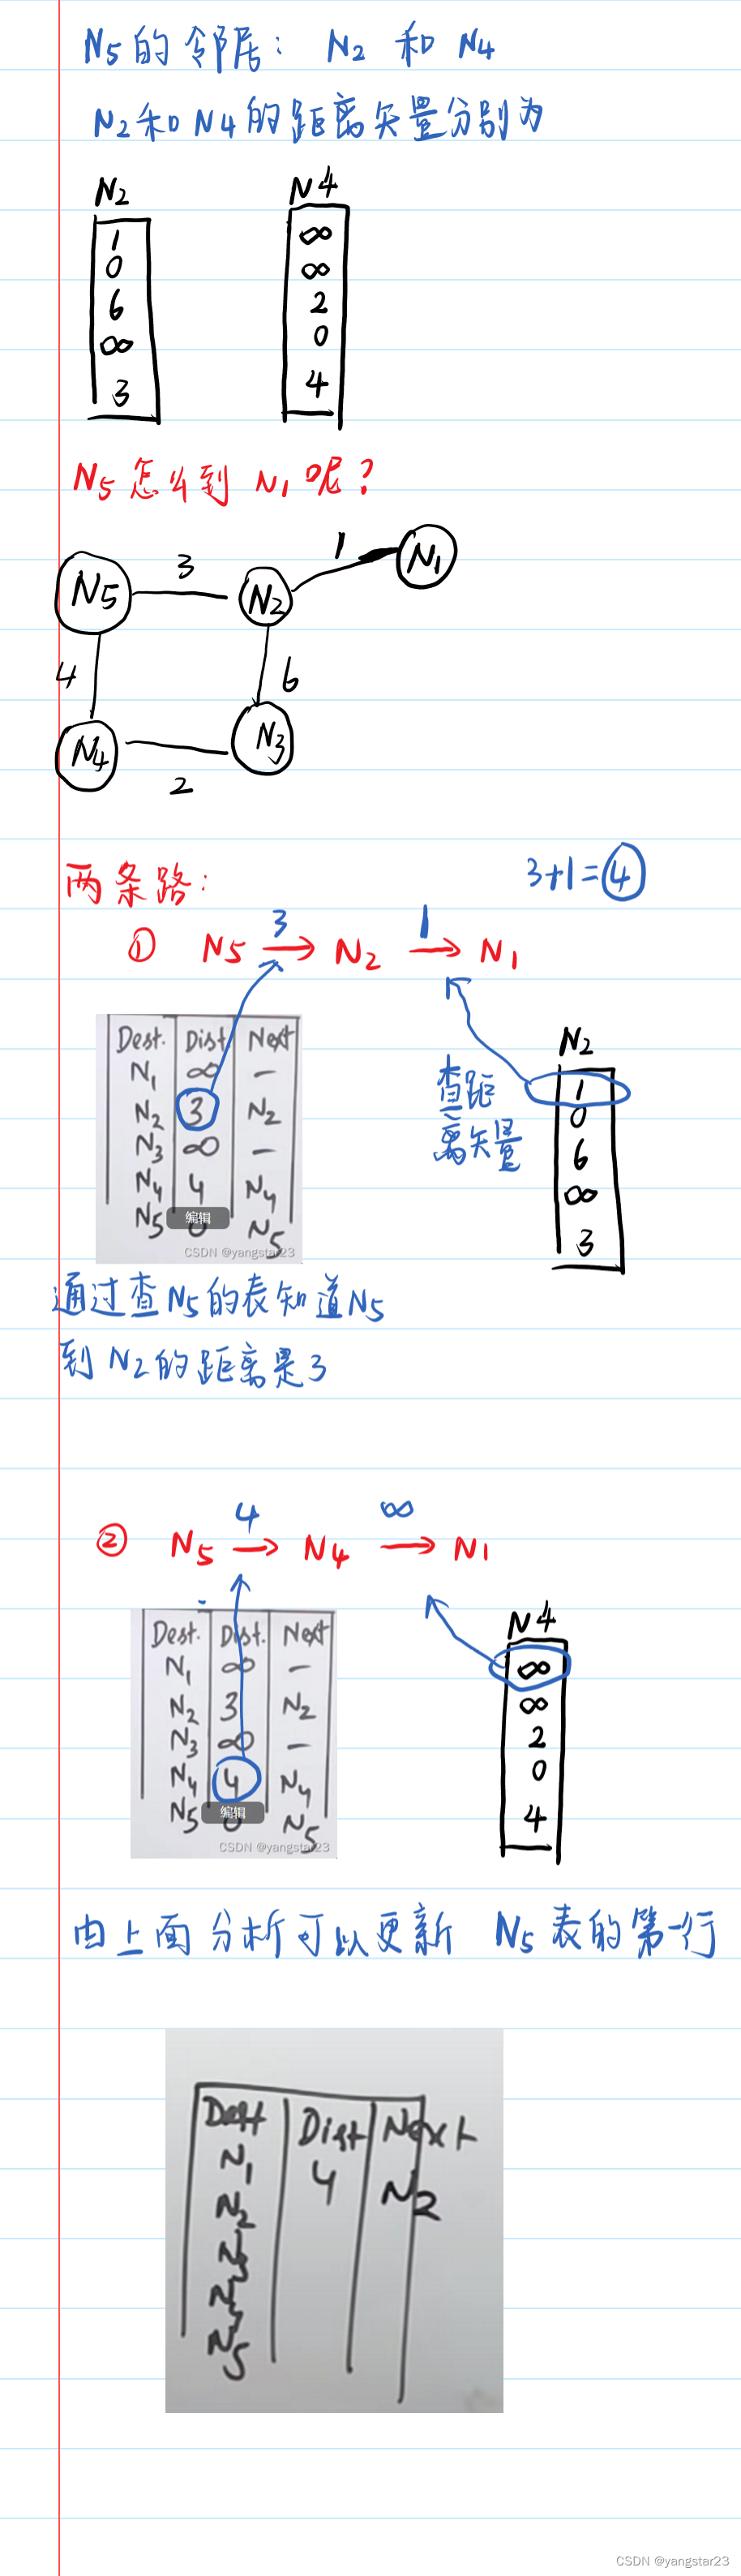 N5的邻居: N2 和 N4
N2和N4的距离矢量分别为
N2 N4
1 ∞
0 ∞
6 2
∞ 0
3 4
N5怎么到 N1呢?
N5 3 N2 1 N1
4 6
N4 2 N3
两条路:
3+1=4
① N5 3→ N2 1→ N1
Dest. Dist Next
N1 ∞ —
N2 3 N2
N3 ∞ —
N4 4 N4
N5 0 N5
编辑
CSDN @yangstar23
查距
离矢量
N2
1
0
6
∞
3
通过查N5的表知道N5
到N2的距离是3
② N5 4→ N4 ∞→ N1
Dest. Dist. Next
N1 ∞ —
N2 3 N2
N3 ∞ —
N4 4 N4
N5 0 N5
编辑
CSDN @yangstar23
N4
∞
∞
2
0
4
由上面分析可以更新 N5表的第一行
Dest Dist Next
N1 4 N2
N2
N3
N4
N5
CSDN @yangstar23